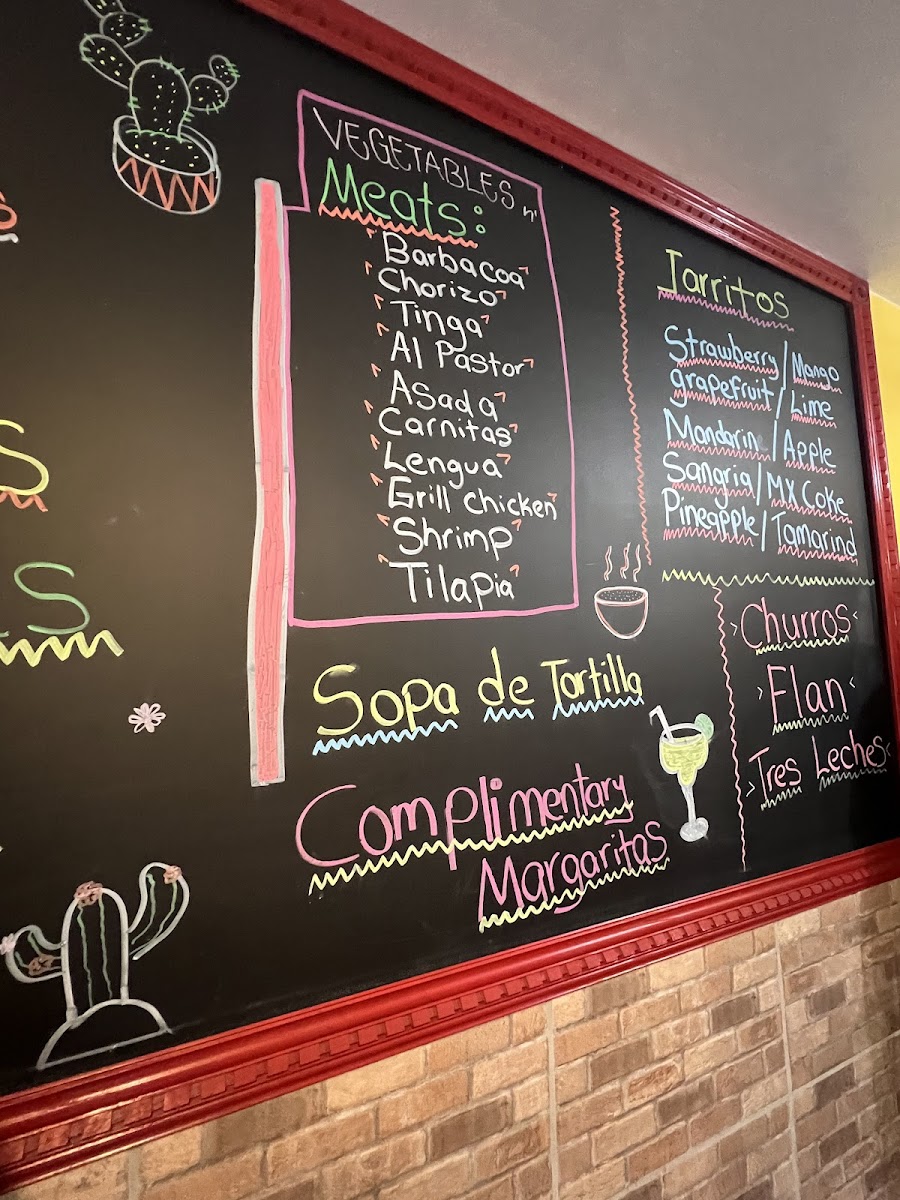 VEGETABLES n'
Meats:
Barbacoa
Chorizo
Tinga
Al Pastor
Asada
Carnitas
Lengua
Grill Chicken
Shrimp
Tilapia
Sopa de Tortilla
Complimentary
Margaritas
Jarritos
Strawberry/Mango
grapefruit/Lime
Mandarine/Apple
Sangria/MX Coke
Pineapple/Tamarind
Churros
Flan
Tres Leches